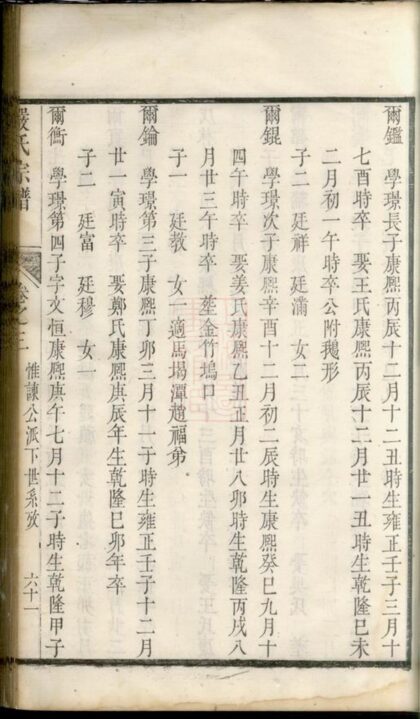 爾鑑 學璟長子康熙丙辰十二月十二丑時生雍正壬子三月十
七酉時卒 娶王氏康熙丙辰十二月廿一丑時生乾隆己未
二月初一午時卒公附鵝形
子二 廷祥 廷滿 女二
爾錕 學璟次子康熙辛酉十二月初二辰時生康熙癸巳九月十
四午時卒 娶姜氏康熙乙丑正月廿八卯時生乾隆丙戌八
月廿三午時卒 塟金竹塢口
子一 廷教 女一適馬塲潭趙福弟
爾錀 學璟第三子康熙丁卯三月十一子時生雍正壬子十二月
廿一寅時卒 娶鄭氏康熙庚辰年生乾隆巳卯年卒
子二 廷富 廷穆 女一
爾衡 學璟第四子字文恒康熙庚午七月十二子時生乾隆甲子
嚴氏宗譜 卷之三 惟諫公派下世系攷 六十一